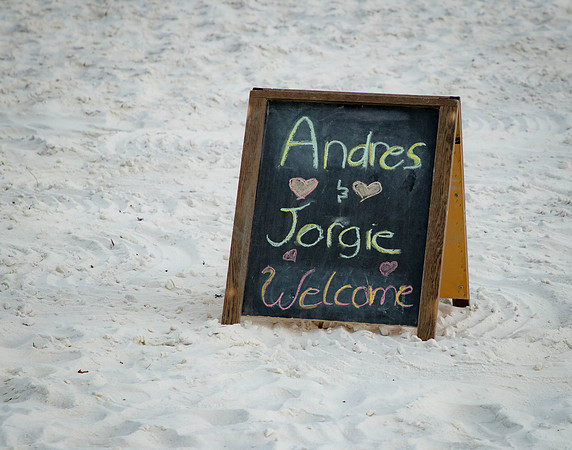 Andres
&
Jorgie
Welcome